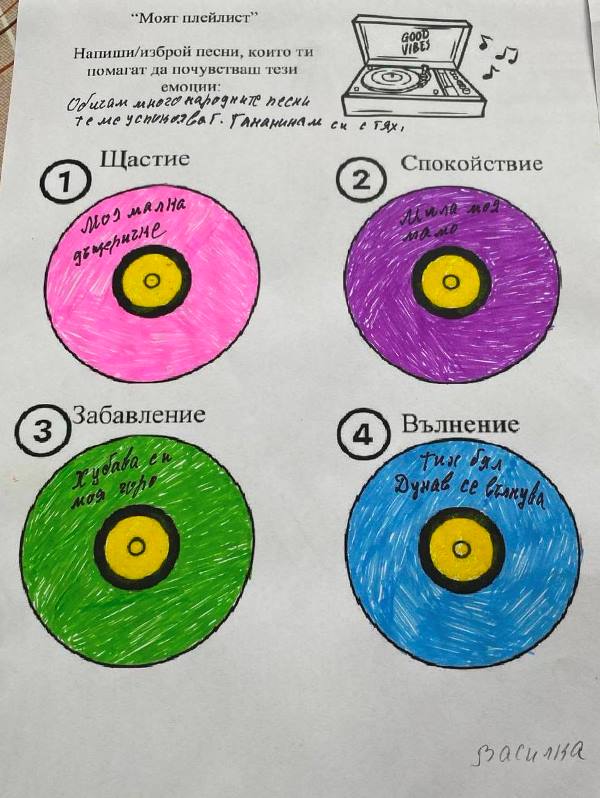 “Моят плейлист”
Напиши/изброй песни, които ти
помагат да почувстваш тези
емоции:
Обичам много народните песни
те ме успокояват. Тананикам си с тях.
GOOD
VIBES
1 Щастие
Моя малка
дъщеричке
2 Спокойствие
Мила моя
мамо
3 Забавление
Хубава си
моя горо
4 Вълнение
Тих бял
Дунав се вълнува
Василка